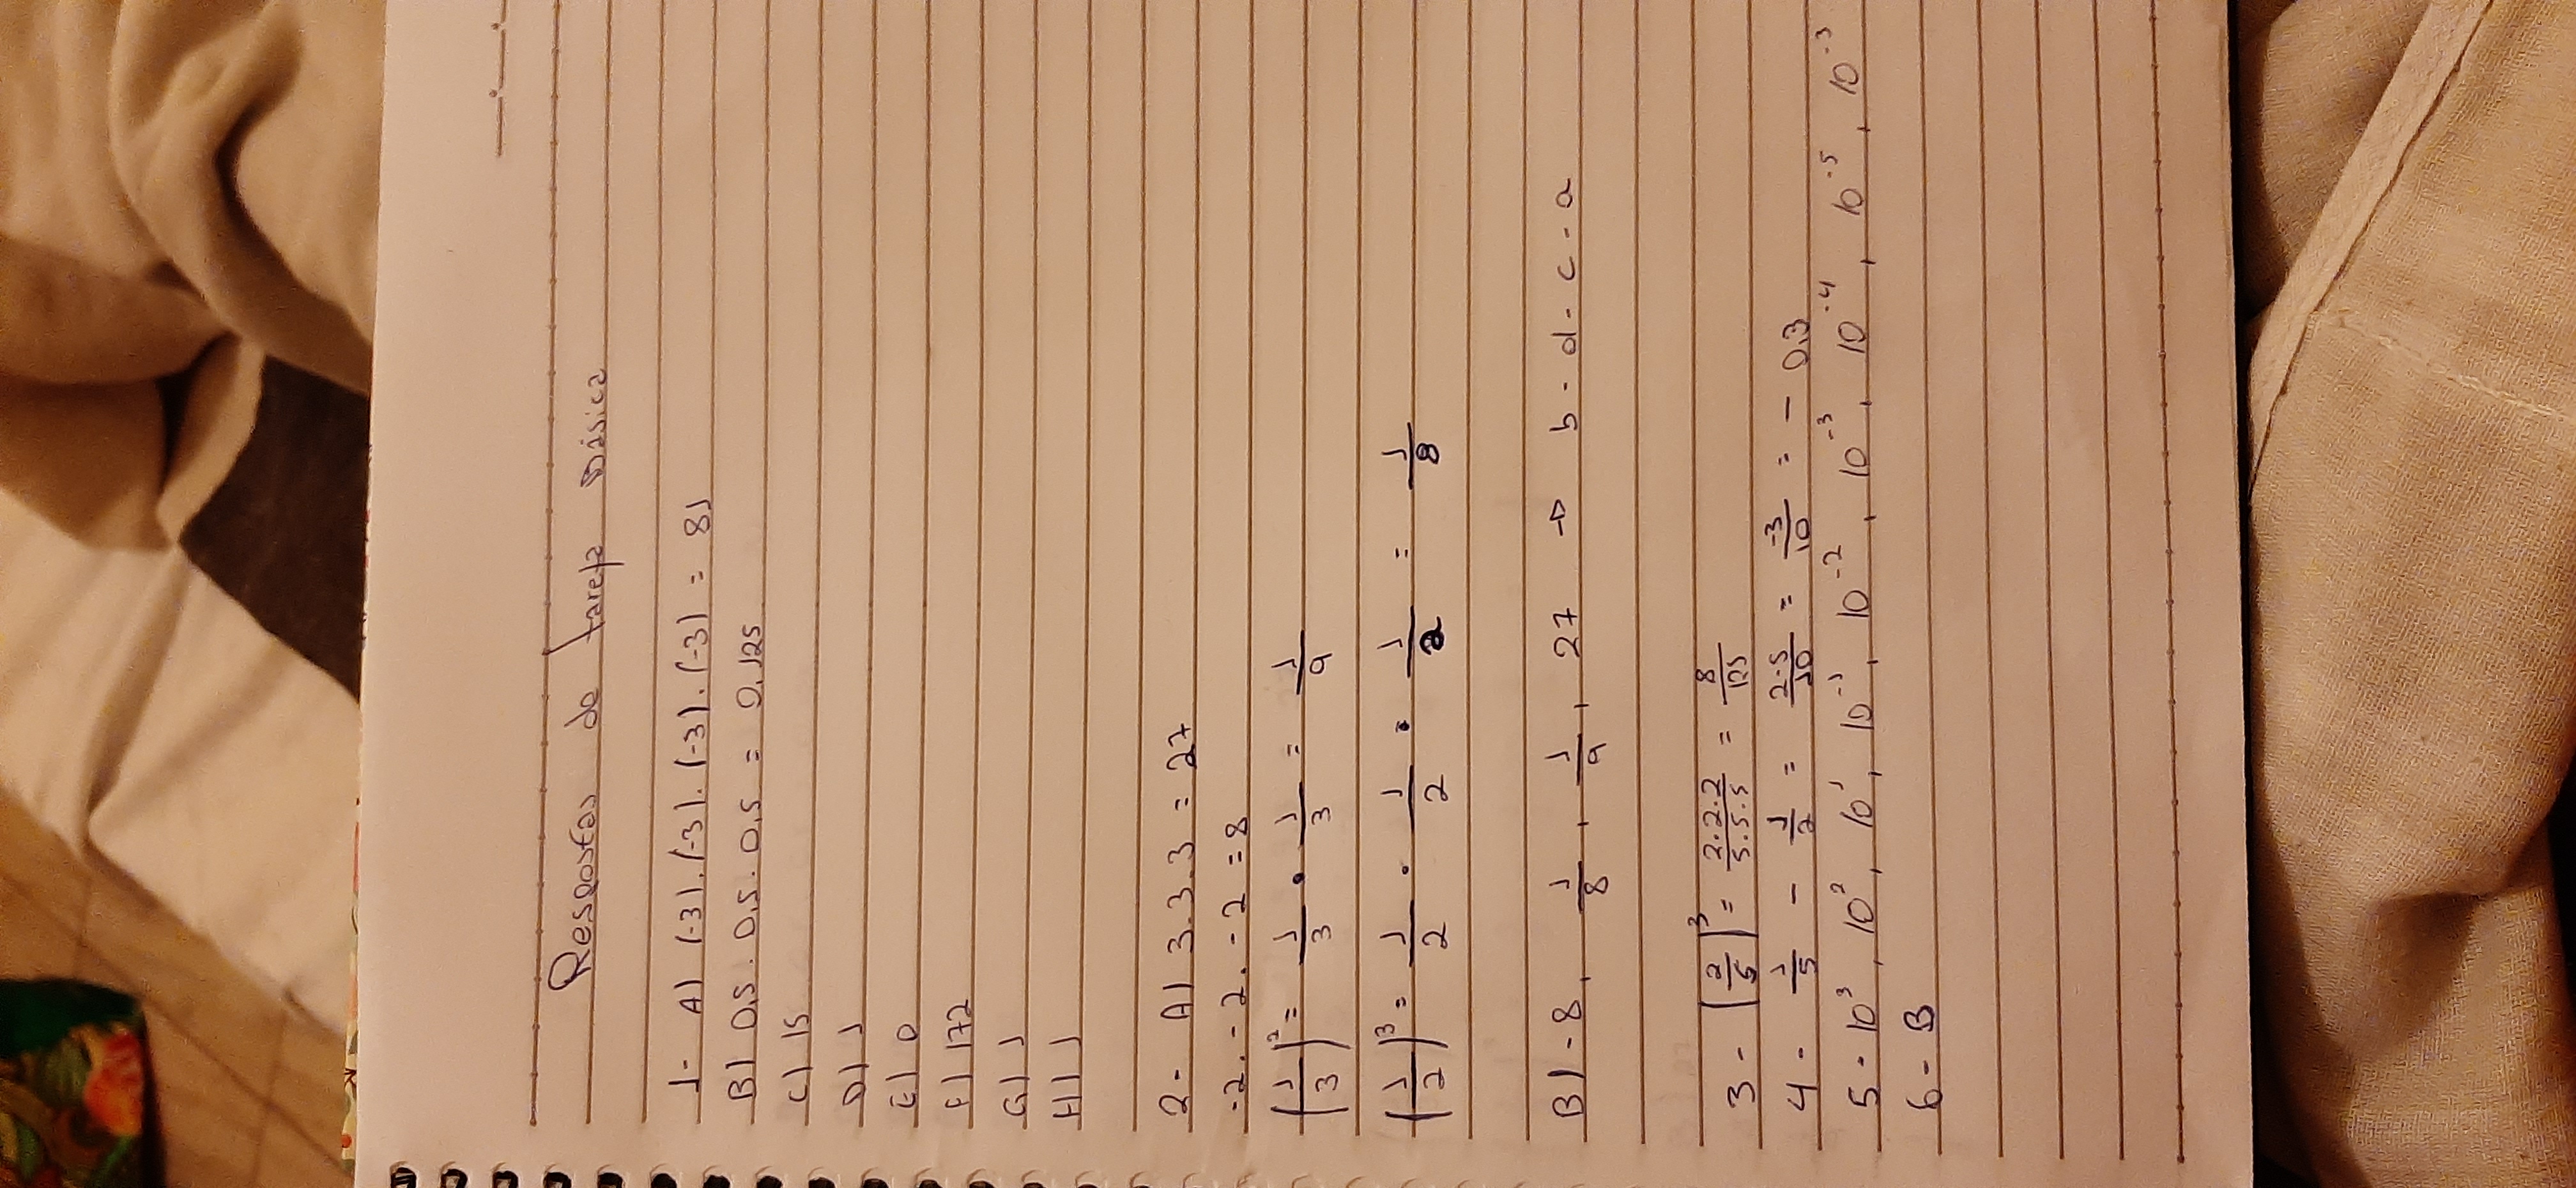 Respostas da tarefa Básica
1- A) (-3).(-3).(-3).(-3) = 81
B) 0,5 . 0,5 . 0,5 = 0,125
C) 15
D) 1
E) 0
F) 172
G) 1
H) 1
2- A) 3.3.3 = 27
-2. -2. -2 = 8
(1/3)² = 1/3 • 1/3 = 1/9
(1/2)³ = 1/2 . 1/2 • 1/2 = 1/8
B) -8, 1/8, 1/9, 27 → b - d - c - a
3 - (2/5)³ = 2.2.2/5.5.5 = 8/125
4 - 1/5 - 1/2 = 2-5/10 = -3/10 = - 0,3
5 - 10³, 10², 10¹, 10⁻¹, 10⁻², 10⁻³, 10⁻⁴, 10⁻⁵, 10⁻³
6 - B